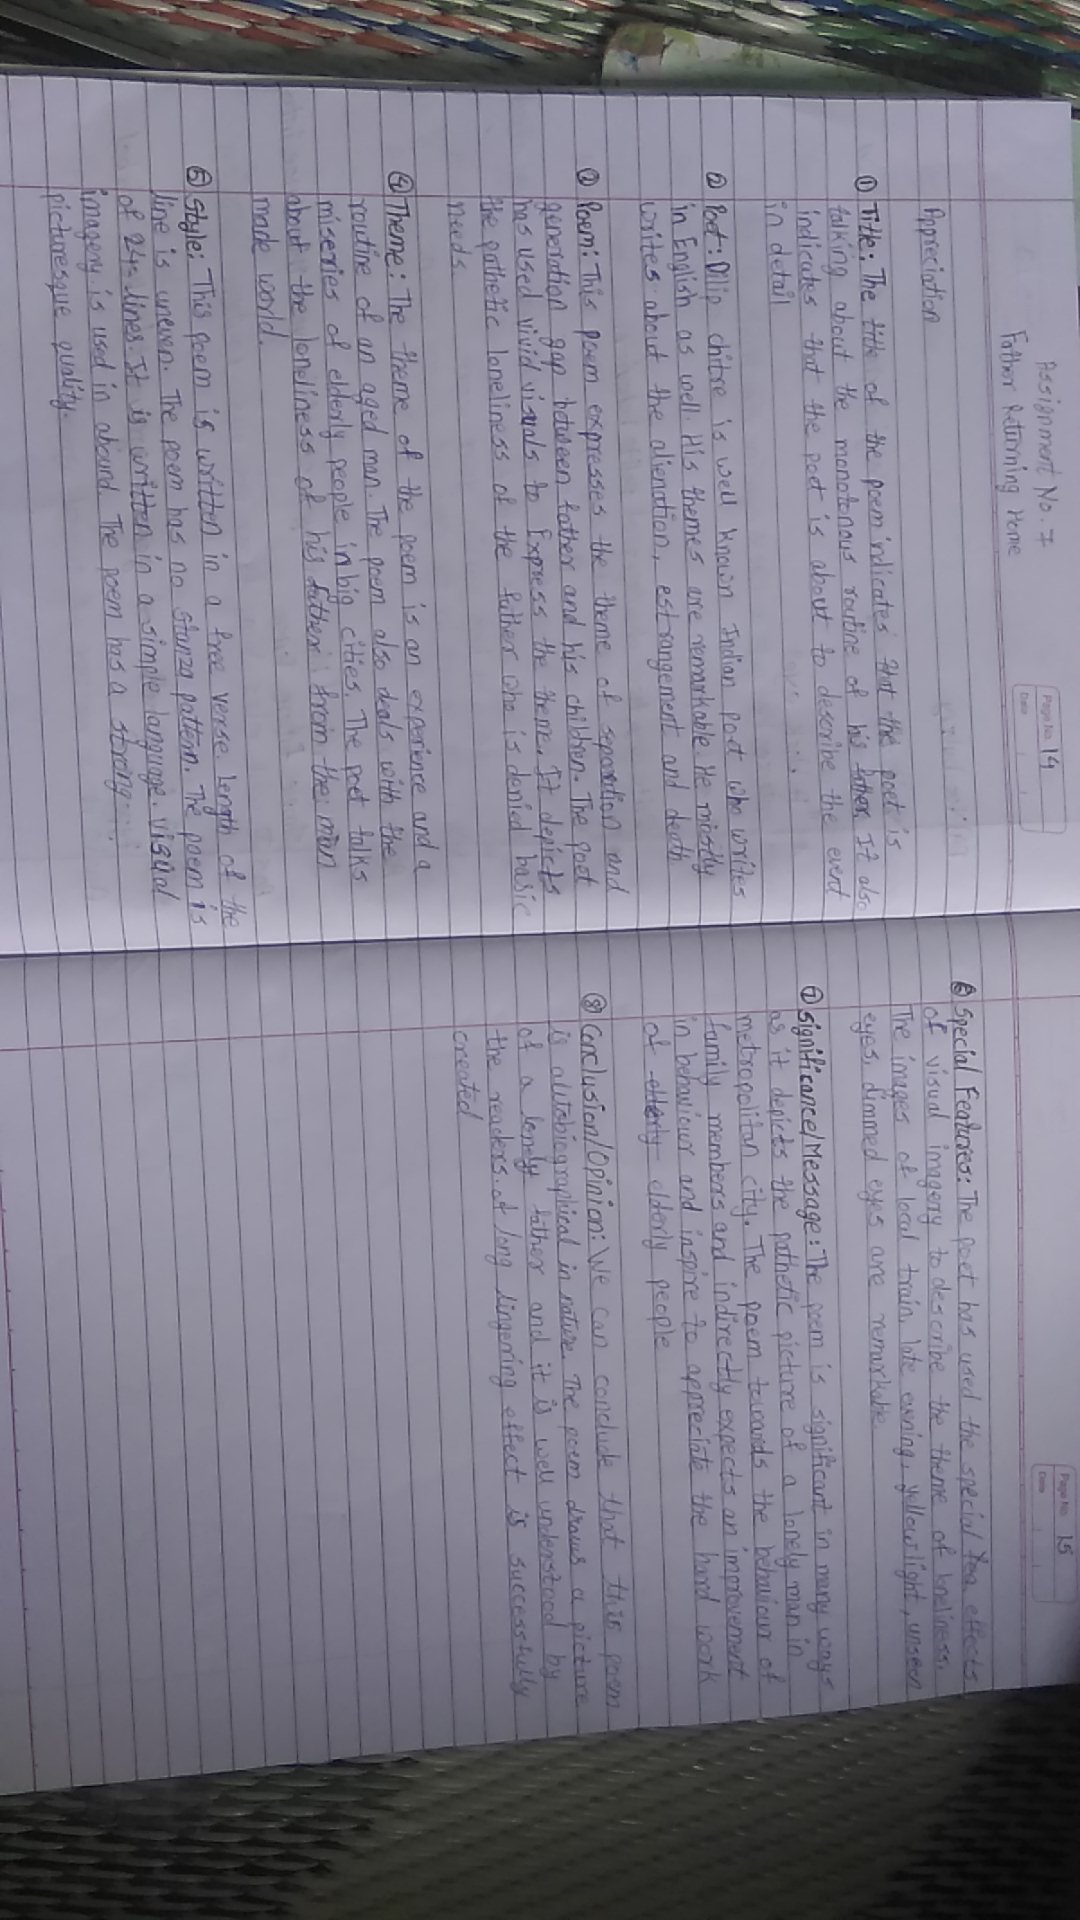 Page No. 14
Date
Assignment No. 7
Father Returning Home
Appreciation
① Title: The title of the poem indicates that the poet is
talking about the monotonous routine of his father It also
indicates that the poet is about to describe the event
in detail
② Poet: Dilip chitre is well known Indian poet who writes
in English as well. His themes are remarkable He mostly
writes about the alienation, estrangement and death
③ Poem: This poem expresses the theme of separation and
generation gap between father and his children. The poet
has used vivid visuals to Express the theme. It depicts
the pathetic loneliness of the father who is denied basic
needs
④ Theme: The theme of the poem is an experience and a
routine of an aged man. The poem also deals with the
miseries of elderly people in big cities. The poet talks
about the loneliness of his father from the man
made world.
⑤ Style: This poem is written in a free verse. length of the
line is uneven. The poem has no stanza pattern. The poem is
of 24 lines. It is written in a simple language. visual
imagery is used in abound The poem has a strong
picturesque quality.
Page No. 15
Date
⑥ Special Features: The poet has used the special effects
of visual imagery to describe the theme of loneliness.
The images of local train, late evening, yellow light, unseen
eyes, dimmed eyes are remarkable
⑦ Significance/Message: The poem is significant in many ways
as it depicts the pathetic picture of a lonely man in
metropolitan city. The poem towards the behaviour of
family members and indirectly expects an improvement
in behaviour and inspire to appreciate the hard work
of elderly people
⑧ Conclusion/Opinion: We can conclude that this poem
is autobiographical in nature. The poem draws a picture
of a lonely father and it is well understood by
the readers. A long lingering effect is successfully
created